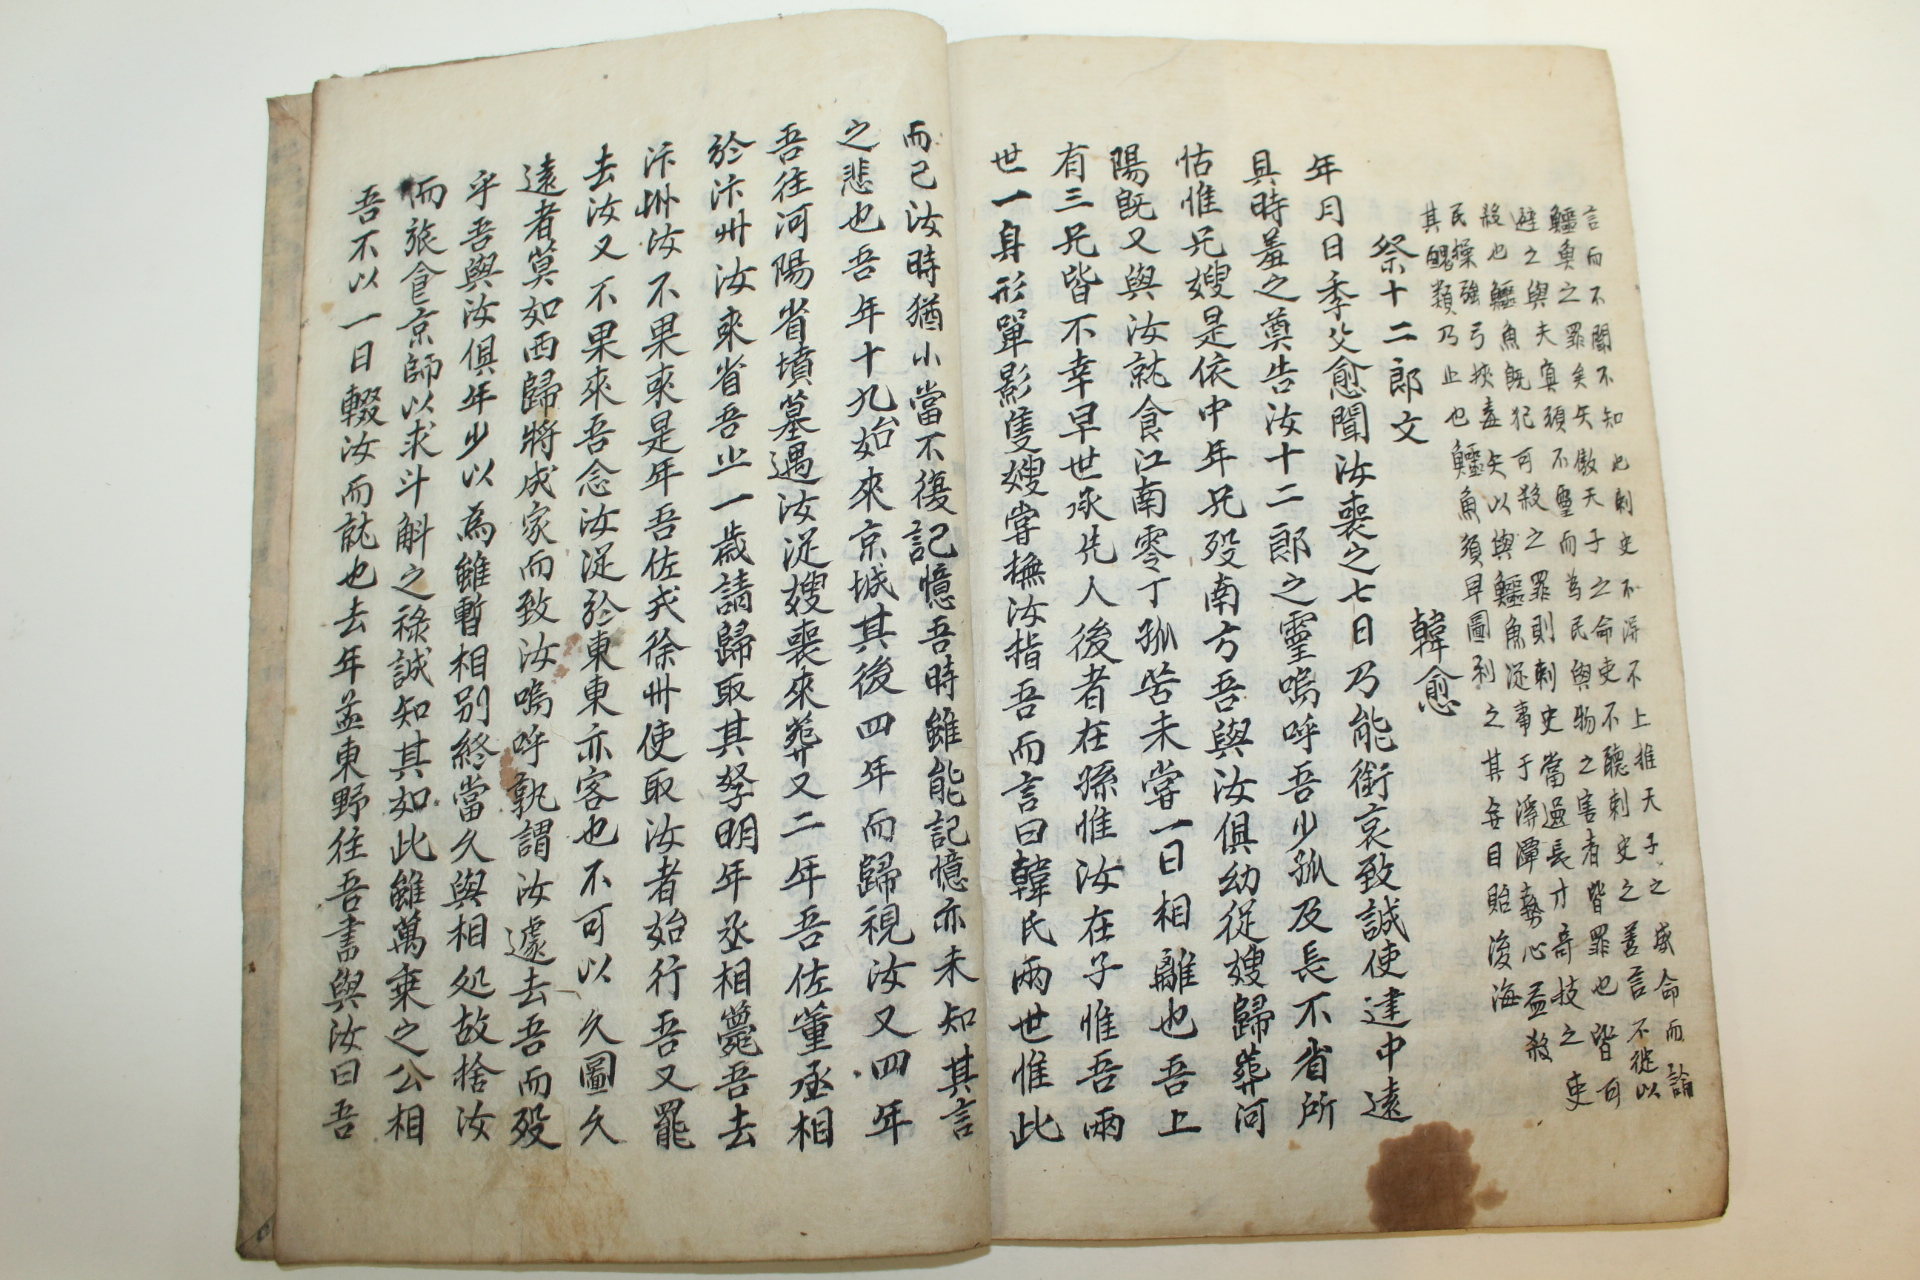 言而不聞不知也刺史不得不上推天子之威命而諭
鱷魚之罪矣夫傲天子之命吏不聽刺史之善言不徙以
避之與夫冥頑不靈而為民與物之害者皆罪也皆可
殺也鱷魚既犯可殺之罪則刺史當選長才奇技之吏
民操強弓挾毒矢以與鱷魚從事于潯潭勢心盡殺
其醜類乃止也鱷魚須早圖利之其毋自貽後海
祭十二郎文 韓愈
年月日季父愈聞汝喪之七日乃能銜哀致誠使建中遠
具時羞之奠告汝十二郎之靈嗚呼吾少孤及長不省所
怙惟兄嫂是依中年兄歿南方吾與汝俱幼從嫂歸葬河
陽既又與汝就食江南零丁孤苦未嘗一日相離也吾上
有三兄皆不幸早世承先人後者在孫惟汝在子惟吾兩
世一身形單影隻嫂嘗撫汝指吾而言曰韓氏兩世惟此
而已汝時猶小當不復記憶吾時雖能記憶亦未知其言
之悲也吾年十九始來京城其後四年而歸視汝又四年
吾往河陽省墳墓遇汝從嫂喪來葬又二年吾佐董丞相
於汴州汝來省吾止一歲請歸取其孥明年丞相薨吾去
汴州汝不果來是年吾佐戎徐州使取汝者始行吾又罷
去汝又不果來吾念汝從於東東亦客也不可以久圖久
遠者莫如西歸將成家而致汝嗚呼孰謂汝遽去吾而歿
乎吾與汝俱年少以為雖暫相別終當久與相処故捨汝
而旅食京師以求斗斛之祿誠知其如此雖萬乘之公相
吾不以一日輟汝而就也去年孟東野往吾書與汝曰吾